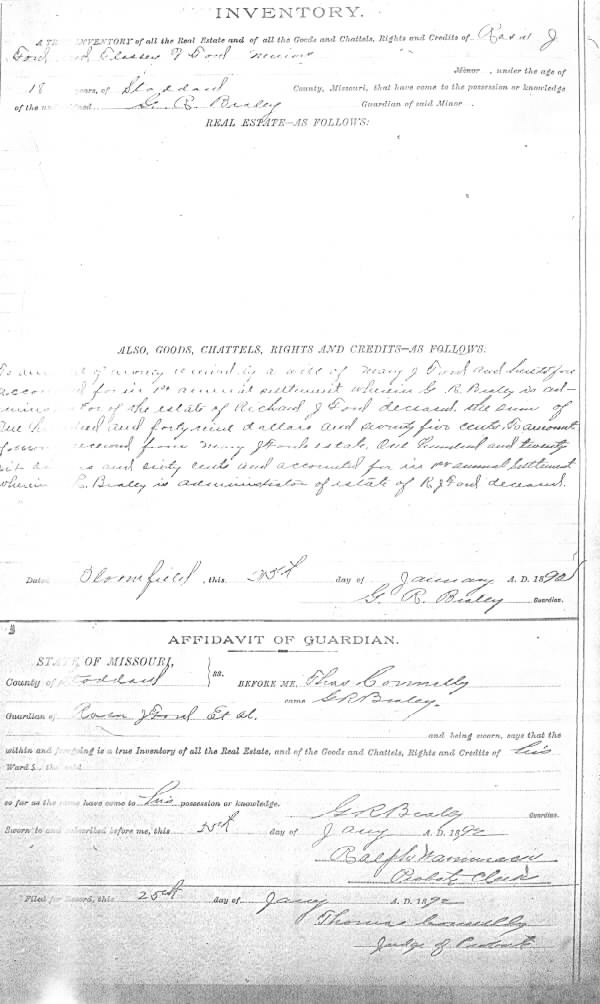 INVENTORY.
A TRUE INVENTORY of all the Real Estate and of all the Goods and Chattels, Rights and Credits of Rosa J
Ford F Ford Minors
Minor , under the age of
18 years, of Stoddard County, Missouri, that have come to the possession or knowledge
of the G. R. Bealey Guardian of said Minor .
REAL ESTATE—AS FOLLOWS:
ALSO, GOODS, CHATTELS, RIGHTS AND CREDITS—AS FOLLOWS:
of money received by a will of Mary J Ford and
for in 1st annual settlement wherein G. R. Bealey is ad-
of the estate of Richard J Ford deceased. the sum of
and forty nine dollars and seventy five cents. To amount
received from Mary J Fords estate. One Hundred and twenty
and sixty cents and accounted for in 1st annual Settlement
wherein R. Bealey is administrator of estate of R J Ford deceased.
Dated Bloomfield , this 25th day of January A. D. 189
G. R. Bealey Guardian.
AFFIDAVIT OF GUARDIAN.
STATE OF MISSOURI,
County of Stoddard } SS. BEFORE ME, Thos Connelly
came G R Bealey.
Guardian of J Ford Et al.
and being sworn, says that the
within and foregoing is a true Inventory of all the Real Estate, and of the Goods and Chattels, Rights and Credits of his
Ward s, the said
so far as the same have come to his possession or knowledge.
G R Bealey Guardian.
Sworn to and subscribed before me, this 25th day of Jany A. D. 1892
Ralph
Probate Clerk
Filed for Record, this 25th day of Jany A. D. 1892
Thomas Connelly
Judge of Probate